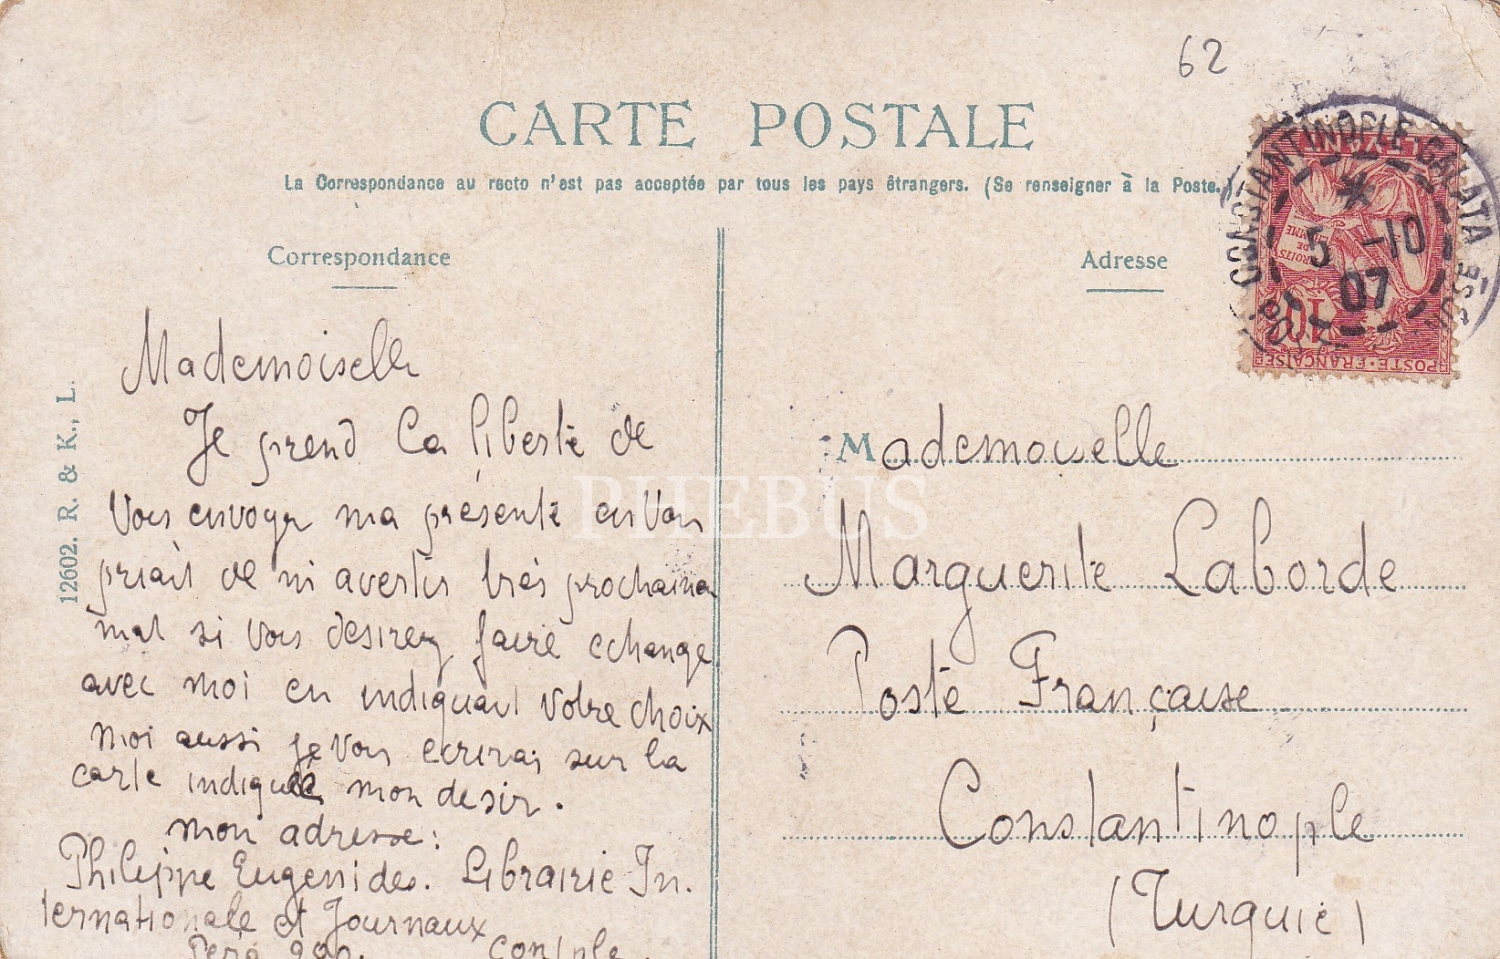 62
CARTE POSTALE
La Correspondance au recto n'est pas acceptée par tous les pays étrangers. (Se renseigner à la Poste.)
Correspondance
Adresse
CONSTANTINOPLE-GALATA
5 -10
07
LEVANT
DROITS
DE
L'HOMME
10
POSTE·FRANÇAISE
Mademoiselle
Je prend la liberté de
vous envoyer ma présente en vous
priant de m'avertir très prochaine
mat si vous desirez faire echange
avec moi en indiquant votre choix
moi aussi je vous ecrirai sur la
carte indiquée mon desir.
mon adresse:
Philippe Eugenides. Librairie In.
ternationale et Journaux
Pera 290. Conſple.
12602. R. & K., L.
Mademoiselle
Marguerite Laborde
Poste Française
Constantinople
(Turquie)
PHEBUS